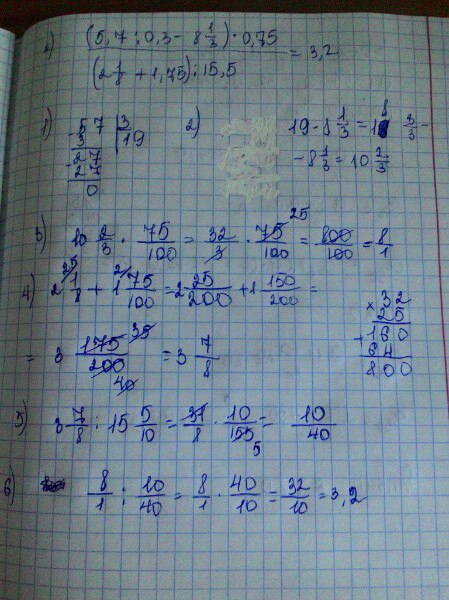 1) (5,7 : 0,3 - 8 1/3) · 0,75 / (2 1/8 + 1,75) : 15,5 = 3,2
1) 57 | 3
3 | 19
- 27
27
0
2) 19 - 8 1/3 = 18 3/3 -
- 8 1/3 = 10 2/3
3) 10 2/3 · 75/100 = 32/3 · 75/100 25 = 800/100 = 8/1
4) 2 1/8 25 + 1 75/100 2 = 2 25/200 + 1 150/200 =
= 3 175/200 35 40 = 3 7/8
× 32
25
+ 160
64
800
5) 3 7/8 : 15 5/10 = 31/8 · 10/155 5 = 10/40
6) 8/1 : 10/40 = 8/1 · 40/10 = 32/10 = 3,2